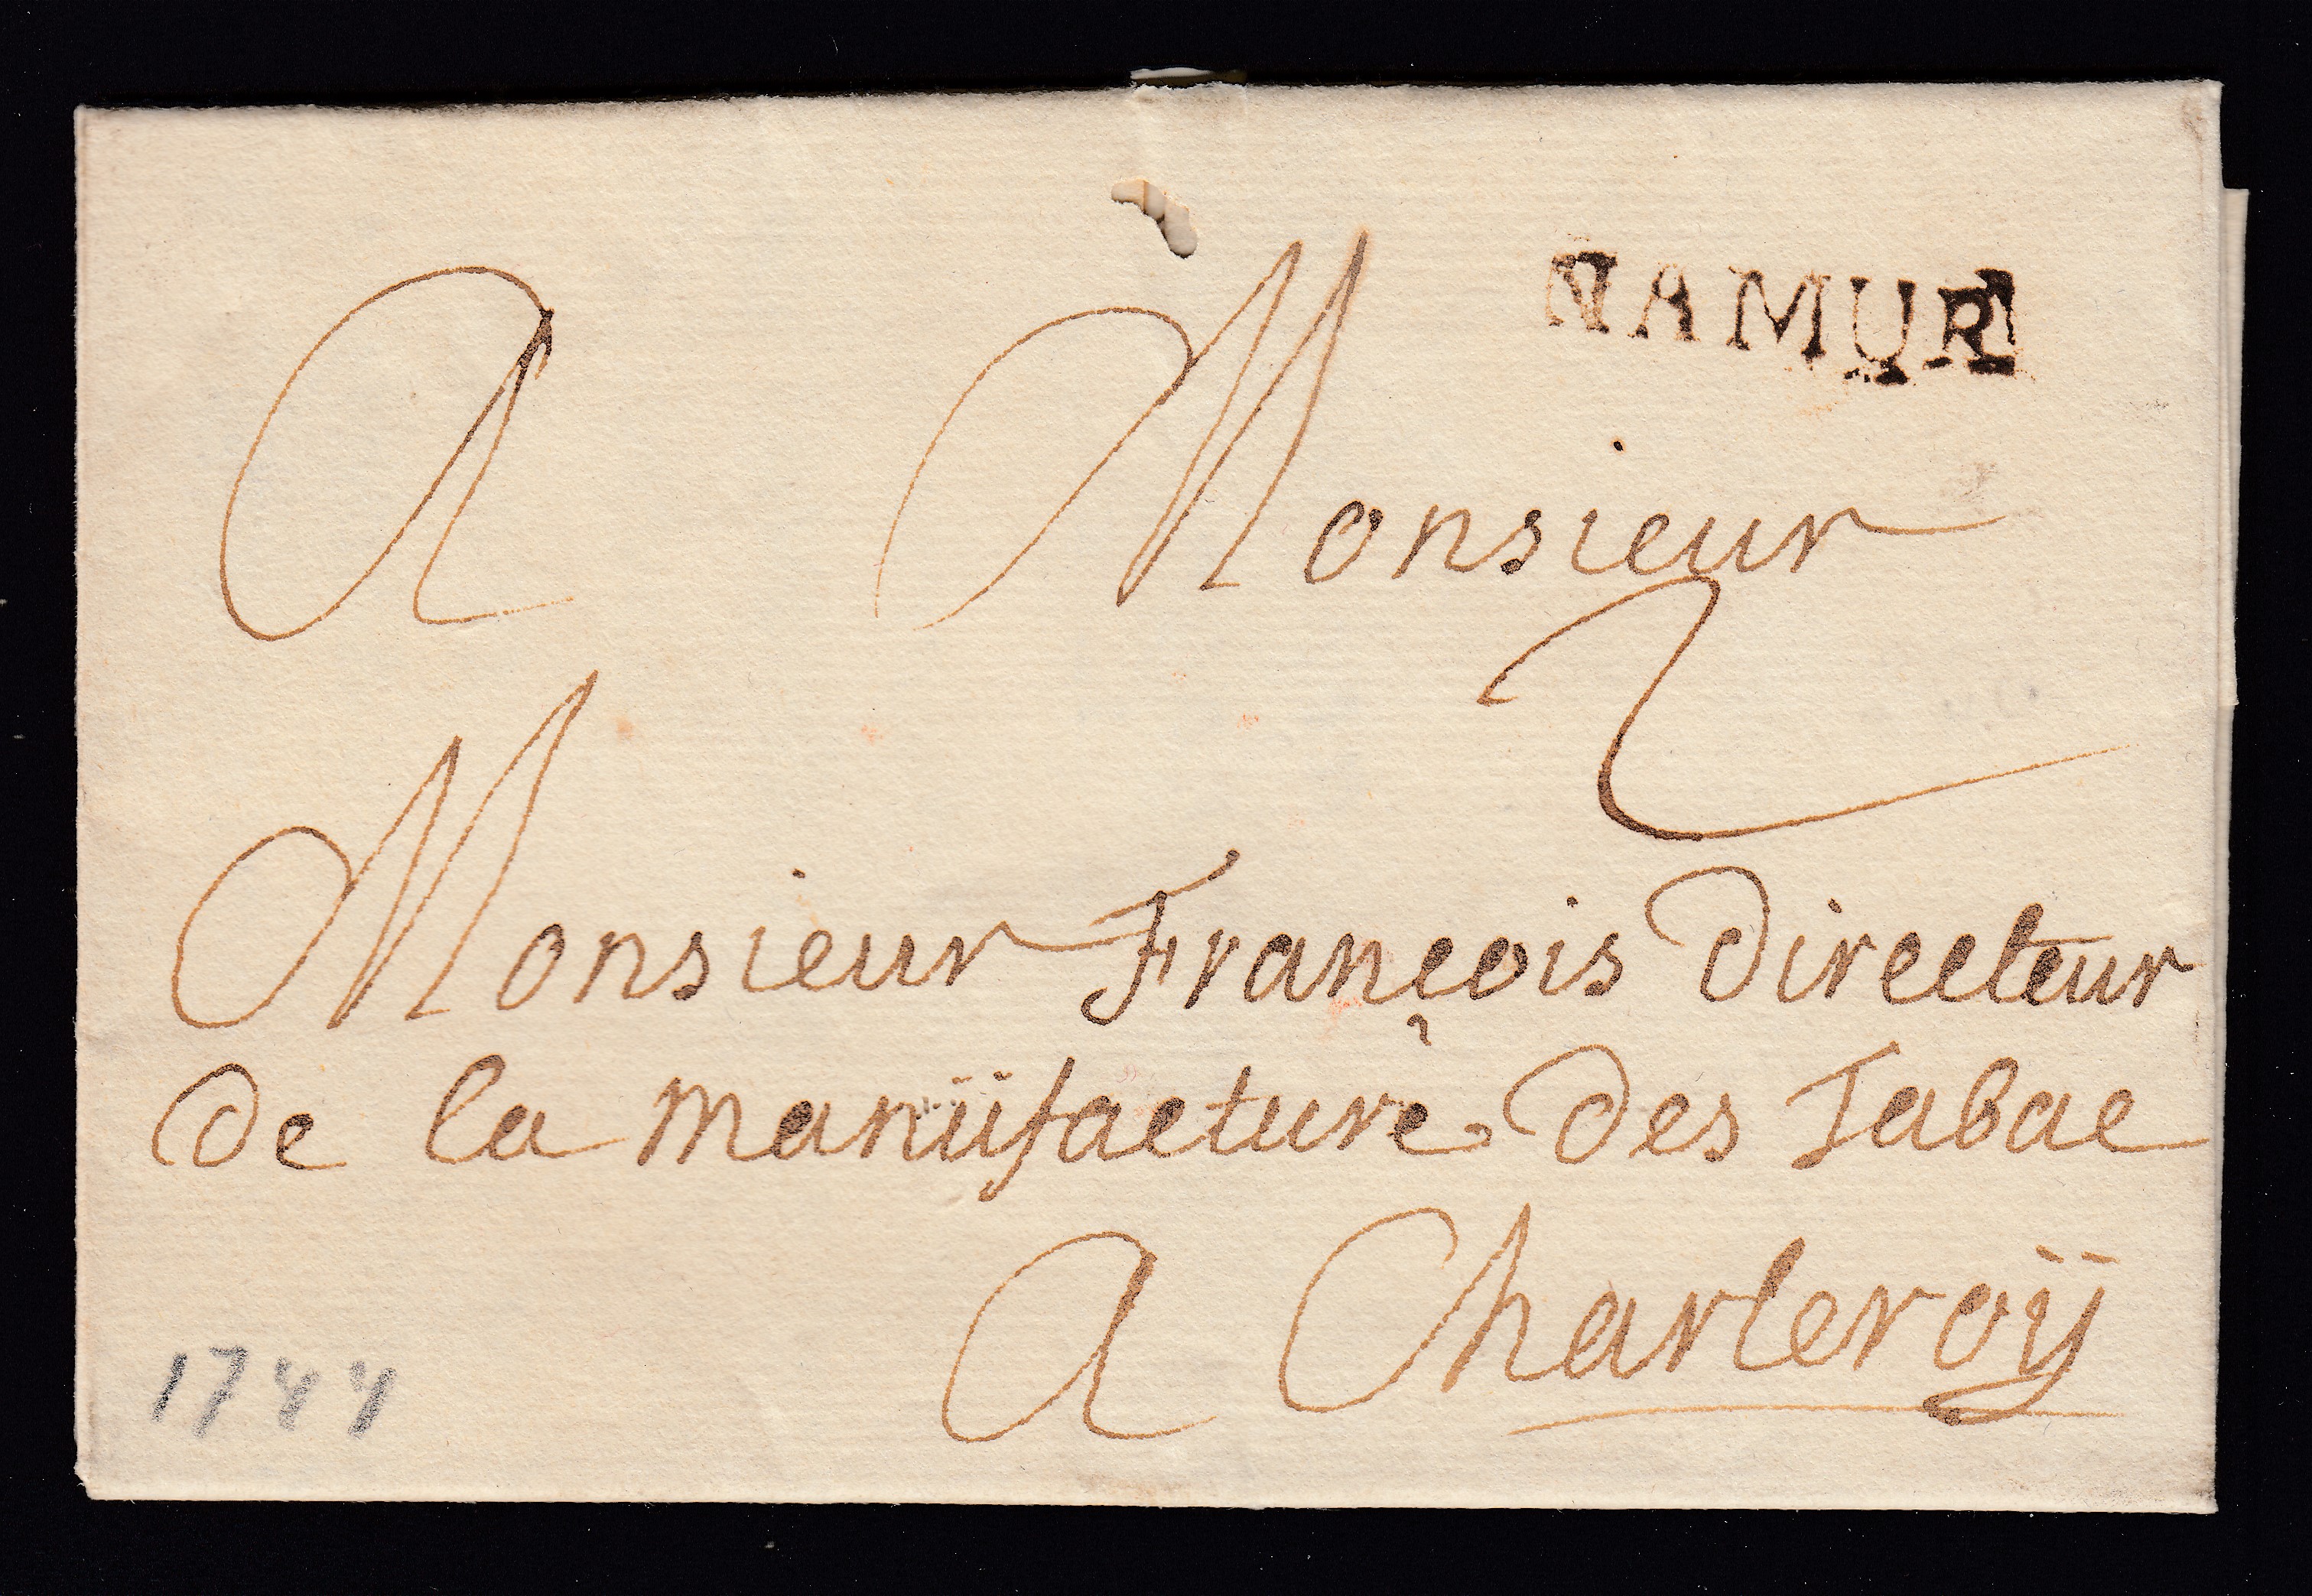 NAMUR
A Monsieur
2
Monsieur François Directeur
De la manüfacture Des Tabac
A Charleroÿ
1744